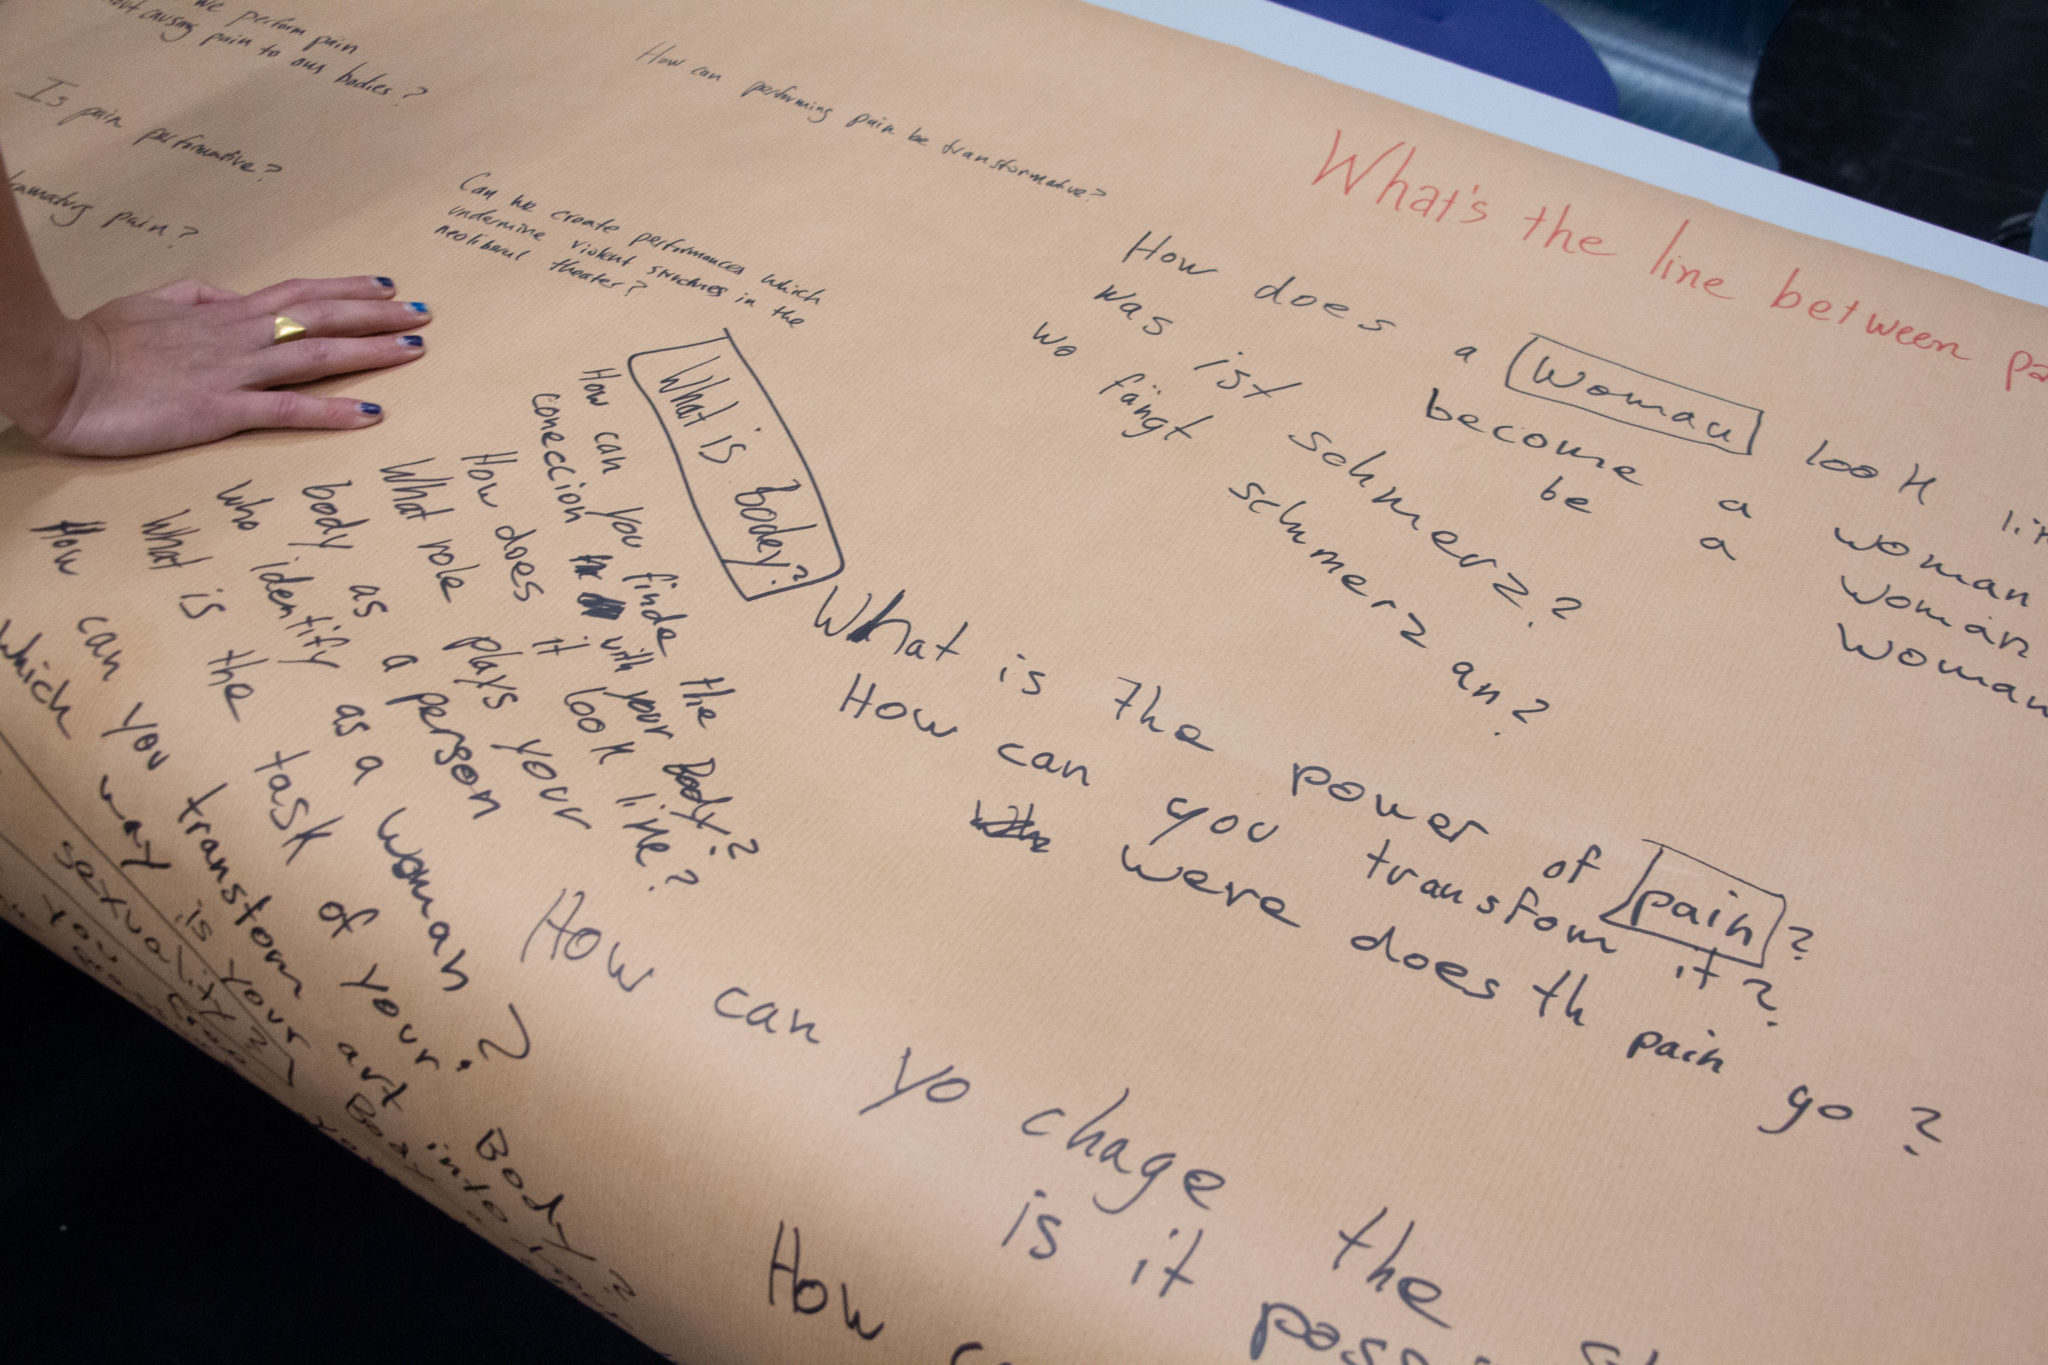 we perform pain
causing pain to our bodies?
Is pain performative?
pain?
How can performing pain be transformative?
Can we create performances which
undermine violent structures in the
neoliberal theater?
What's the line between
How does a Woman look
become a woman
be a woman
woman
Was ist schmerz?
wo fängt schmerz an?
What is bodey?
How can you finde the
conecion with your Body?
How does it look like?
What role plays your
body as a person
who identify as a woman?
What is the task of your Body?
How can you transtom your art into
which way is your
sexuality?
What is the power of pain?
How can you transfom it?
were does th pain go?
How can yo chage the
is it
How